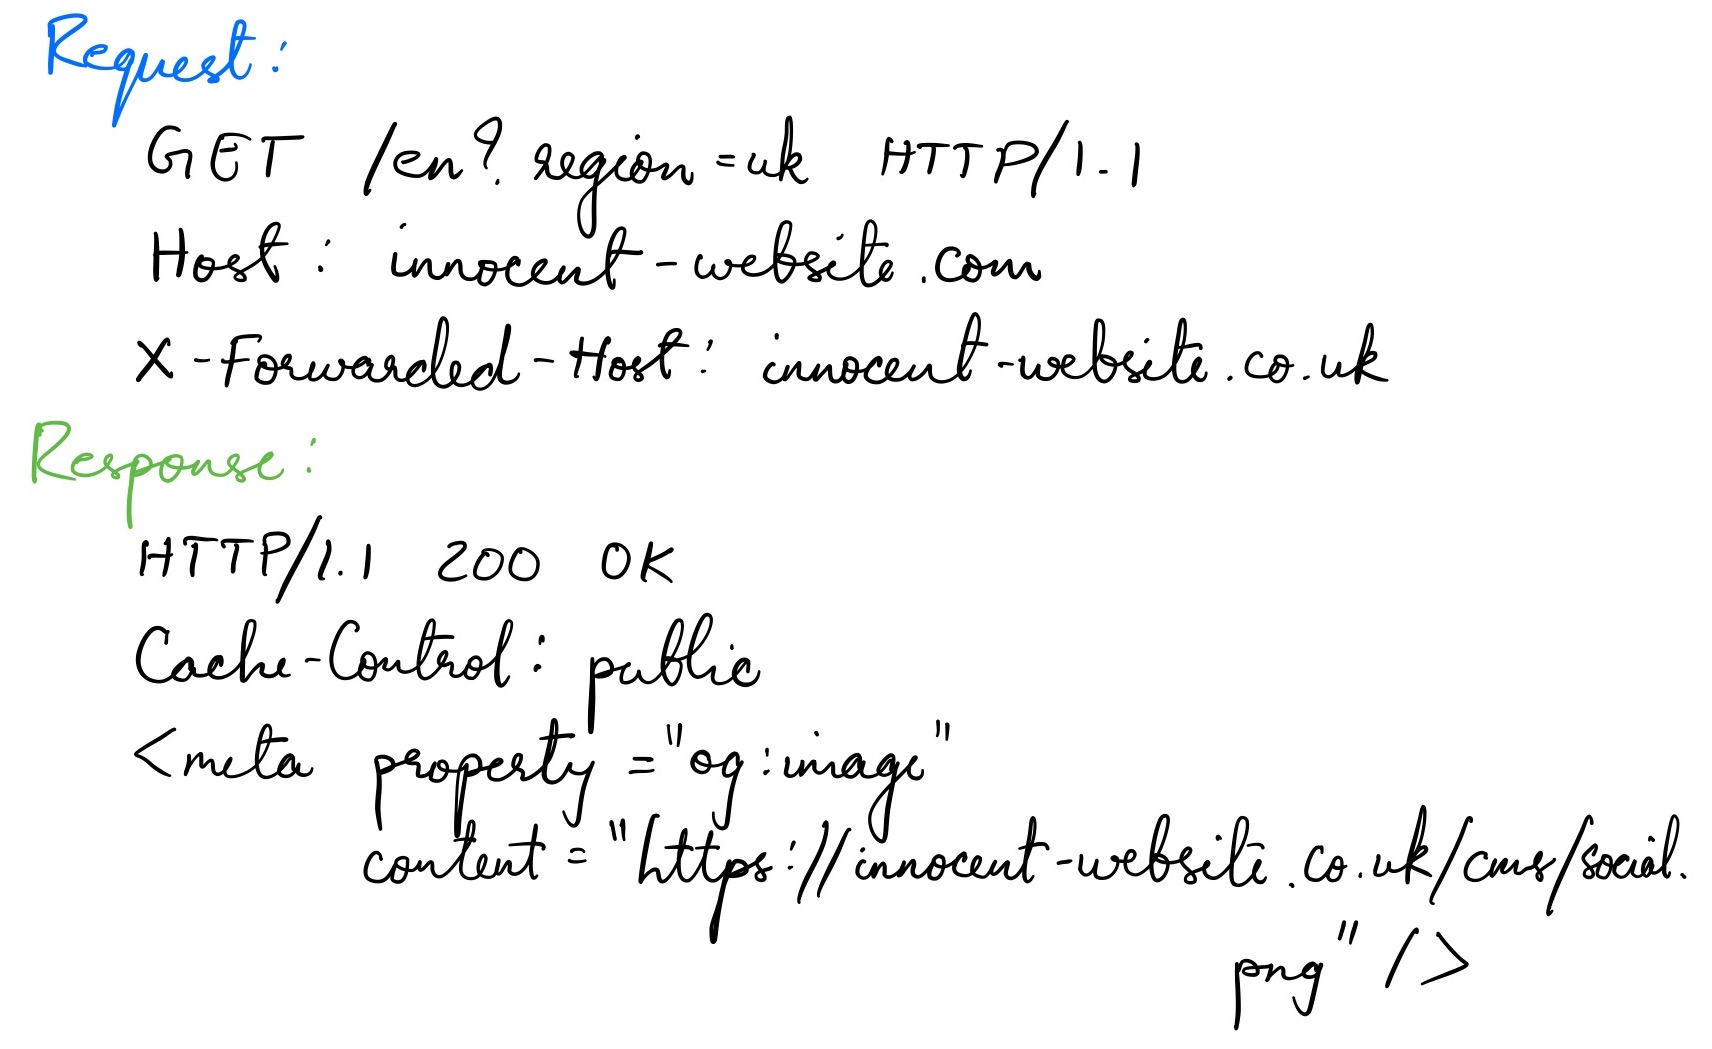 Request:
GET /en?region=uk HTTP/1.1
Host: innocent-website.com
X-Forwarded-Host: innocent-website.co.uk
Response:
HTTP/1.1 200 OK
Cache-Control: public
<meta property="og:image"
content="https://innocent-website.co.uk/cms/social.
png" />